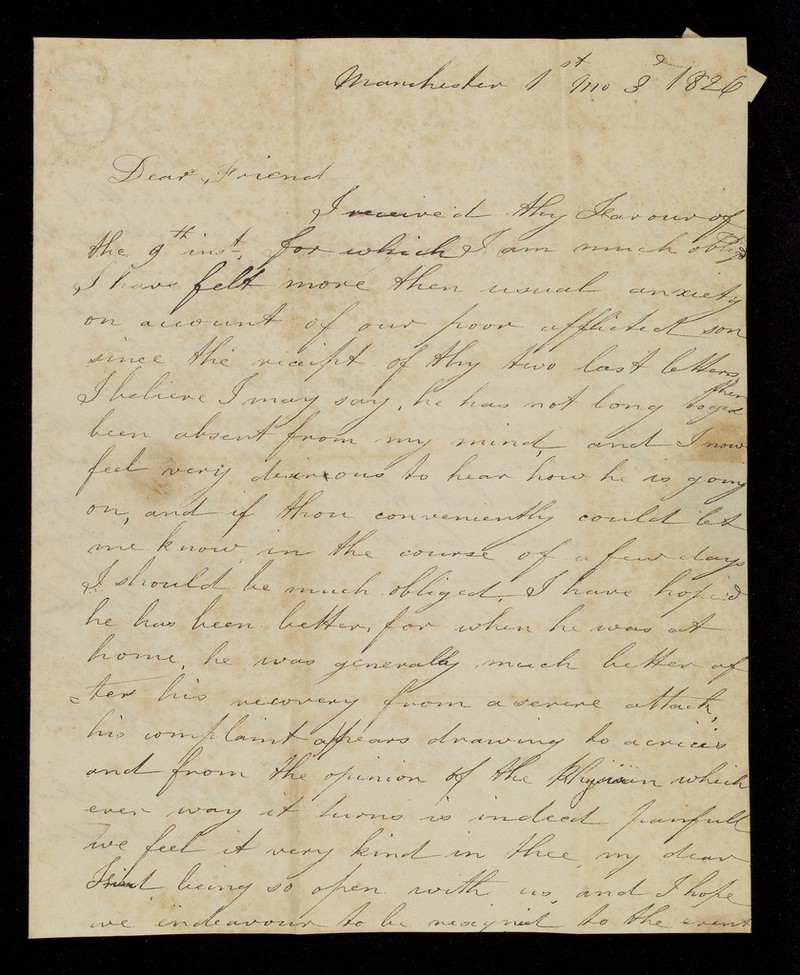 Manchester 1st mo 3d 1826
Dear Friend
I received thy Favour of
the 9th inst, for which I am much oblig'd
I have felt more then usual anxiety
on account of our poor afflicted son
since the receipt of thy two last letters,
I believe I may say, he has not long together
been absent from my mind, and I now
feel very desireous to hear how he is going
on, and if thou conveniently could let
me know in the course of a few days
I should be much obliged, I have hope'd
he has been better, for when he was at
home, he was generally much better af
ter his recovery from a severe attack,
his complaint appears drawing to a crices
and from the opinion of the Physician which
ever way it turns is indeed painfull
we feel it very kind in thee my dear
Friend being so open with us, and I hope
we endeavour to be resigned to the event